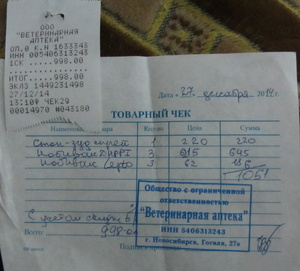 ООО
"ВЕТЕРИНАРНАЯ
АПТЕКА"
ОП.0 К.N 1633343
ИНН 005406313243
1СК ...998.00
ИТОГ......998.00
ЭКЛЗ 1449231490
27/12/14
13:10 ЧЕК29
00014970 #043180
Дата «27» декабря 2014г.
ТОВАРНЫЙ ЧЕК
Наименование товара Кол-во Цена Сумма
1 220 220
3 215 645
3 62 186
1051
С учетом скидки
Всего 998
Общество с ограниченной
ответственностью
"Ветеринарная аптека"
ИНН 5406313243
г. Новосибирск, Гоголя, 27а